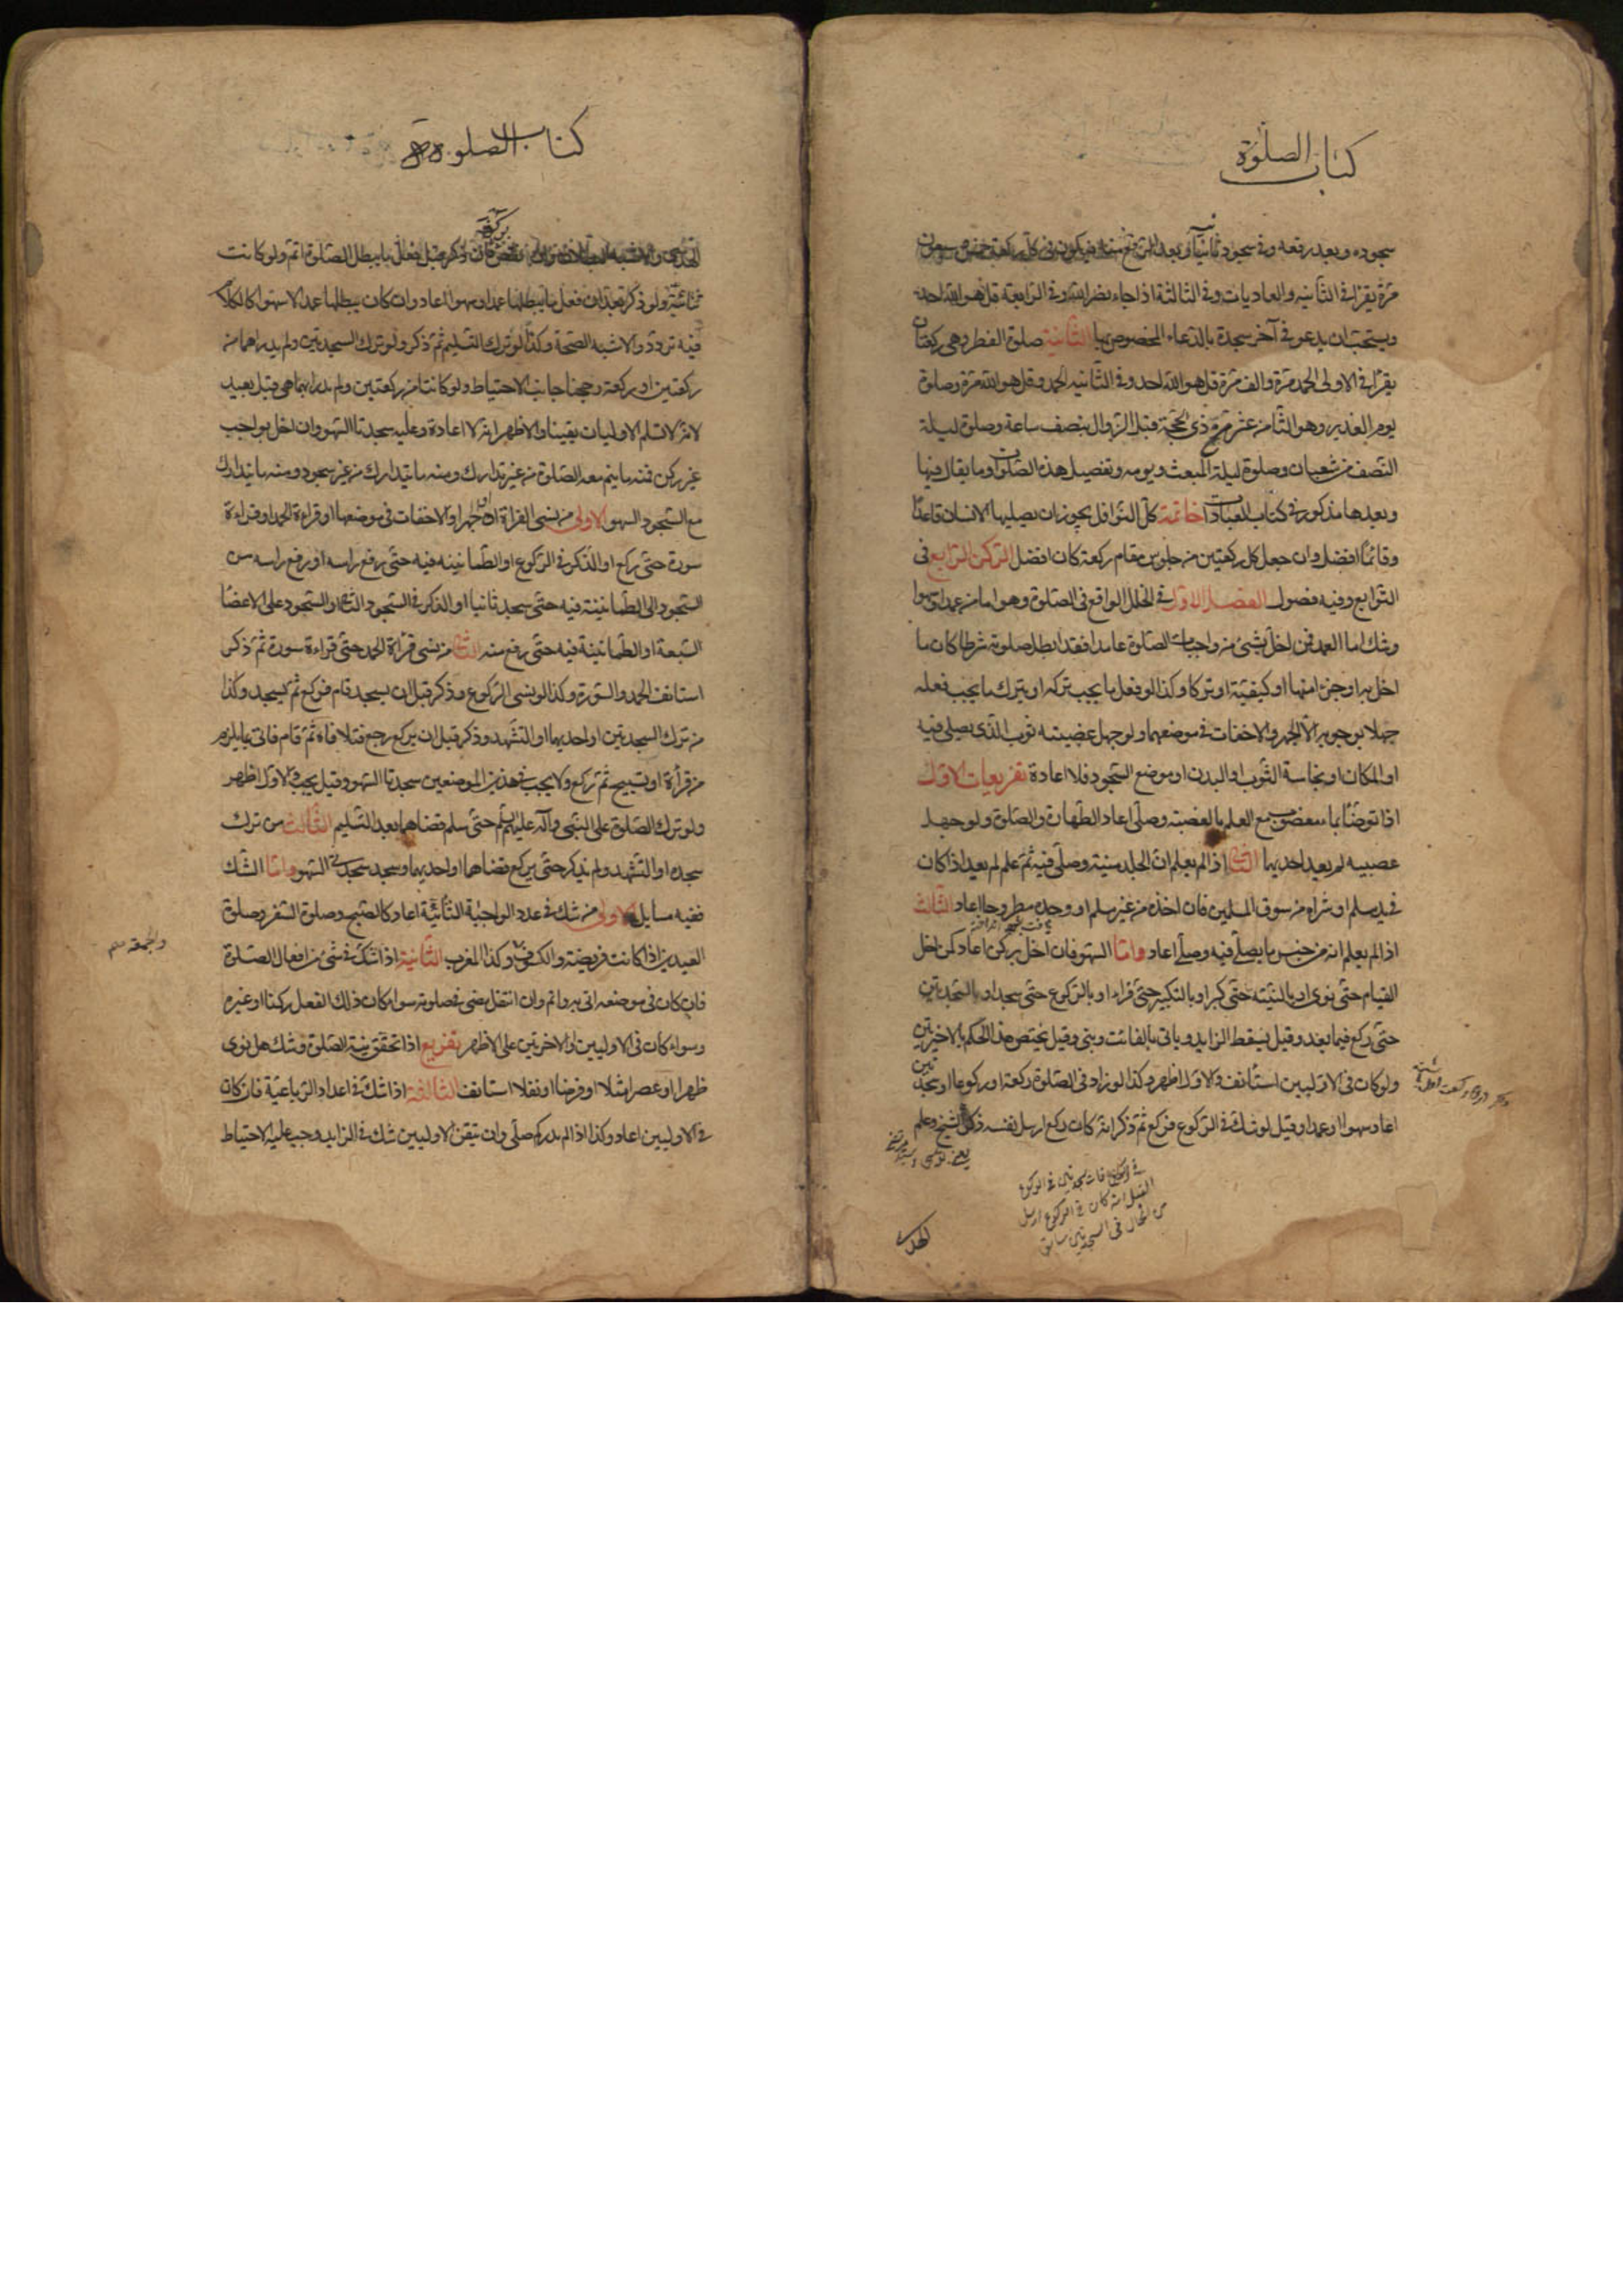 كتاب الصلوة
سجوده وبعد رفعه وفي سجوده ثانيا وبعد الرفع منه فيكون في كل ركعة خمس وسبعون
مرة يقرأ في الثانيه والعاديات وفي الثالثة اذا جاء نصر الله وفي الرابعة قل هو الله احد
ويستحب ان يدعو في آخر سجدة بالدعاء المخصوص بها الثانية صلوة الفطر وهي ركعتان
يقرأ في الاولى الحمد مرة والف مرة قل هو الله احد وفي الثانيه الحمد وقل هو الله مرة وصلوة
يوم الغدير وهو الثامن عشر من ذي الحجة قبل الزوال بنصف ساعة وصلوة ليلة
النصف من شعبان وصلوة ليلة المبعث ويومه وتفصيل هذه الصلوات وما يقال فيها
وبعدها مذكور في كتاب العبادات خاتمة كل النوافل يجوز ان يصليها الانسان قاعدا
وقائما افضل وان جعل كل ركعتين من جلوس مقام ركعة كان افضل الركن الرابع في
التوابع وفيه فصول الفصل الاول في الخلل الواقع في الصلوة وهو اما من عمد او سهو
وشك اما العمد فمن اخل بشئ من واجبات الصلوة عامدا فقد ابطل صلوته شرطا كان ما
اخل به او جزءا منها او كيفية او تركا وكذا لو فعل ما يجب تركه او يترك ما يجب فعله
جهلا بوجوبه الا الجهر والاخفات في موضعهما ولو جهل غصبية ثوب الذى يصلى فيه
او المكان او نجاسة الثوب او البدن او موضع السجود فلا اعادة تفريعات الاول
اذا توضأ بماء مغصوب مع العلم بالغصبية وصلى اعاد الطهارة والصلوة ولو جهل
غصبيه لم يعد احديهما الثاني اذا لم يعلم ان الجلد ميتة وصلى فيه ثم علم لم يعد اذا كان
في يد مسلم او شراه من سوق المسلمين فان اخذه من غير مسلم او وجده مطروحا اعاد الثالث
اذا لم يعلم انه من جنس ما يصلى فيه وصلى اعاد واما السهو فان اخل بركن اعاد كمن اخل
القيام حتى نوى او بالنيته حتى كبر او بالتكبير حتى قراء او بالركوع حتى سجد او بالسجدتين
حتى ركع فيما بعد وقيل يسقط الزايد وياتى بالفائت ويبنى وقيل يختص هذا الحكم بالاخيرتين
ولو كان في الاوليين استأنف والاول اظهر وكذا لو زاد في الصلوة ركعة او ركوعا او سجدتين
اعاد سهوا او عمدا وقيل لو شك في الركوع فركع ثم ذكر انه كان ركع ارسل نفسه ذكره الشيخ وعلم
الهدى
كتاب الصلوة
الهدى والاشبه البطلان وان نقص ركعة فان ذكر قبل فعل ما يبطل الصلوة اتم ولو كانت
ثنائية ولو ذكر بعد ان فعل ما يبطلها عمدا وسهوا اعاد وان كان يبطلها عمدا لا سهوا كالكلام
فيه تردد والاشبه الصحة وكذا لو ترك التسليم ثم ذكر ولو ترك السجدتين ولم يدر اهما من
ركعتين او ركعة رجحنا جانب الاحتياط ولو كانتا من ركعتين ولم يدر ايهما هي قيل يعيد
لانه لا تسلم الاوليات يقينا والاظهر انه لا اعادة وعليه سجدتا السهو وان اخل بواجب
غير ركن فمنه ما يتم معه الصلوة من غير تدارك ومنه ما يتدارك من غير سجود ومنه ما يتدارك
مع السجود السهو الاولى من نسى القراة او الجهر او الاخفات في موضعها او قراءة الحمد او قراءة
سورة حتى ركع او الذكر في الركوع او الطمانينه فيه حتى رفع راسه او رفع راسه من
السجود او الطمانينة فيه حتى سجد ثانيا او الذكر في السجود الثاني او السجود على الاعضا
السبعة او الطمانينة فيه حتى رفع منه الثاني من نسى قراة الحمد حتى قراءة سورة ثم ذكر
استانف الحمد والسورة وكذا لو نسى الركوع وذكر قبل ان يسجد قام فركع ثم يسجد وكذا
من ترك السجدتين او احديهما او التشهد وذكر قبل ان يركع رجع فتلافاه ثم قام فاتى بما يلزم
من قرأة او تسبيح ثم ركع ولا يجب في هذين الموضعين سجدتا السهو وقيل يجب والاول اظهر
ولو ترك الصلوة على النبي وآله عليهم السلم حتى سلم قضاهما بعد التسليم الثالث من ترك
سجده او التشهد ولم يذكر حتى يركع قضاهما او احديهما وسجد سجدتى السهو واما الشك
ففيه مسايل الاولى من شك في عدد الواجبة الثنائية اعاد كالصبح وصلوة السفر وصلوة
العيدين اذا كانت فريضته والكسوف وكذا المغرب الثانية اذا شك في شئ من افعال الصلوة
والجمعه
فان كان في موضعه اتى به واتم وان انتقل مضى في صلوته سواء كان ذلك الفعل ركنا او غيره
وسواء كان في الاوليين او الاخرتين على الاظهر تفريع اذا تحقق نية الصلوة وشك هل نوى
ظهرا او عصرا مثلا او فرضا او نفلا استانف الثالثة اذا شك في اعداد الرباعية فان كان
في الاوليين اعاد وكذا اذا لم يدر كم صلى وان تيقن الاوليين شك في الزايد وجب عليه الاحتياط